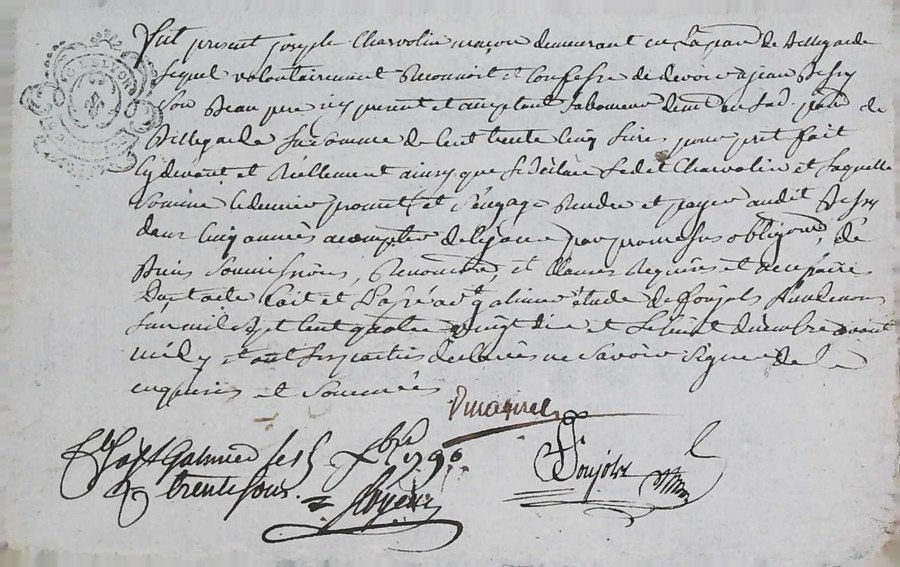 fut present joseph Charvolin maçon demeurant en la par de Bellegarde
lequel volontairement Reconnoit et Confesse de devoir a jean
son Beau pere icy present et acceptant laboureur dem en lad. par de
Bellegarde la somme de Cent trente Cinq livres pour pret fait
Cydevant et Réellement ainsy que le déclare ledet Charvolin et laquelle
somme le dernier promet et s'engage Rendre et payer audit
dans Cinq années a compter de ce jour par promesses obligons de
Biens Soumissions, Renoncons et Clauses Requises et necessaires
Dont acte fait et Passé a St galmier étude de Soujols
l'an mil sept Cent quatre vingt dix et le huit décembre avant
midy et ont les parties déclarées ne savoir signer de ce
enquises et sommées
Clé a St Galmier le 15 Xbre 1790
R trente sous.
Soujols